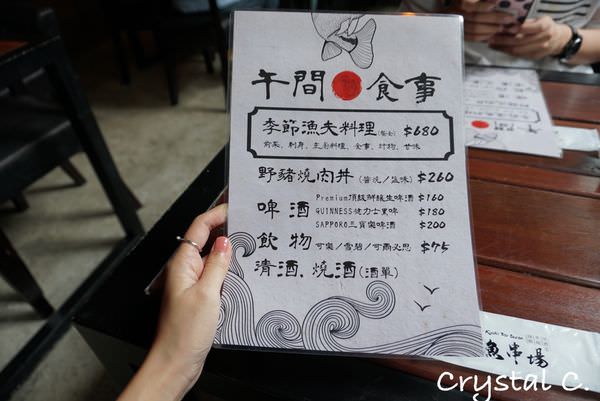 午間 食事
季節漁夫料理(套餐) $680
前菜、刺身、主廚料理、食事、汁物、甘味
野豬燒肉丼 (醬燒/塩味) $260
啤酒 Premium頂級鮮綠生啤酒 $160
GUINNESS健力士黑啤 $180
SAPPORO三寶樂啤酒 $200
飲物 可樂/雪碧/可爾必思 $75
清酒、燒酒(酒單)
魚串場
Crystal C.